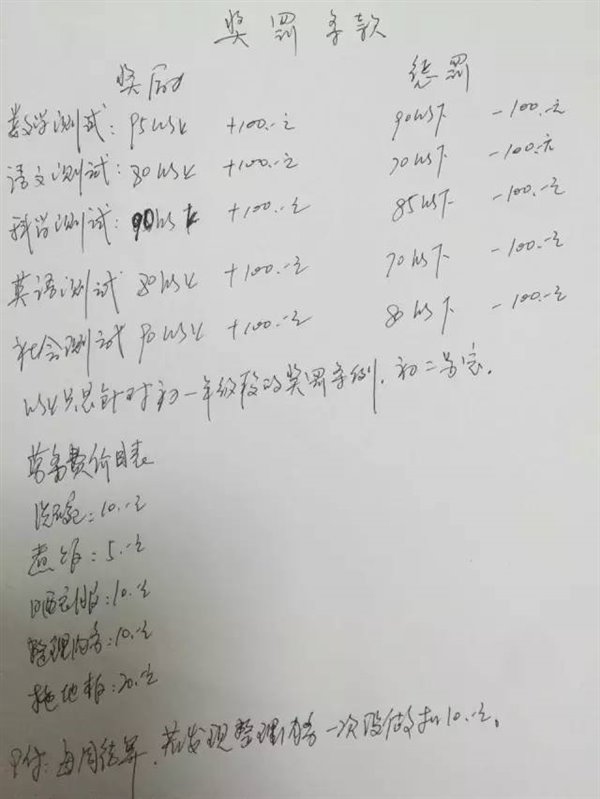 奖罚条款
奖励 惩罚
数学测试：95以上 +100.-元 90以下 -100.元
语文测试：80以上 +100.-元 70以下 -100.元
科学测试：90以上 +100.-元 85以下 -100.-元
英语测试 80以上 +100.-元 70以下 -100.-元
社会测试 90以上 +100.-元 80以下 -100.-元
以上只是针对初一年级段的奖罚条例，初二另定。
劳务费价目表
洗碗：10.-元
煮饭：5.-元
晒衣服：10.-元
整理内务：10.-元
拖地板：20.-元
附：每周结算，若发现整理内务一次没做扣10.-元。